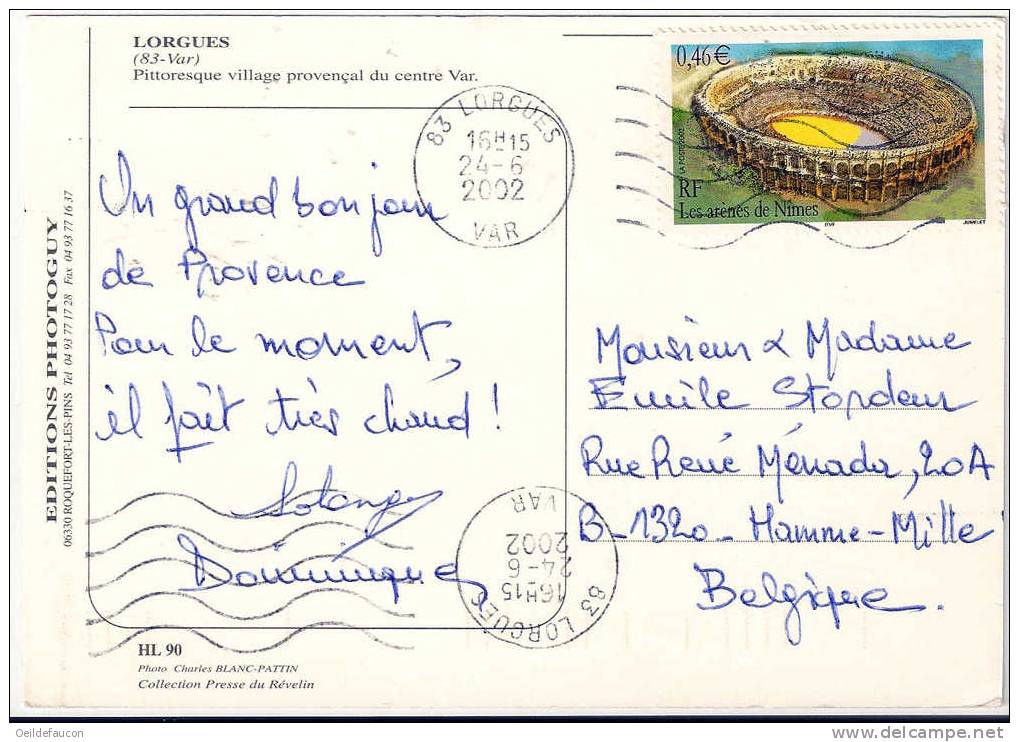 LORGUES
(83-Var)
Pittoresque village provençal du centre Var.
83 LORGUES
16H15
24-6
2002
VAR
0,46€
LA POSTE 2002
RF
Les arènes de Nîmes
ITVF
JUMELET
Un grand bonjour
de Provence
Pour le moment,
il fait très chaud !
Solange
Dominique
Monsieur & Madame
Emile Stordeur
Rue René Ménada, 20A
B-1320- Hamme-Mille
Belgique.
83 LORGUES
16H15
24-6
2002
VAR
EDITIONS PHOTOGUY
06330 ROQUEFORT-LES-PINS Tel 04 93 77 17 28 Fax 04 93 77 16 37
HL 90
Photo Charles BLANC-PATTIN
Collection Presse du Révelin
Oeildefaucon
www.delcampe.net